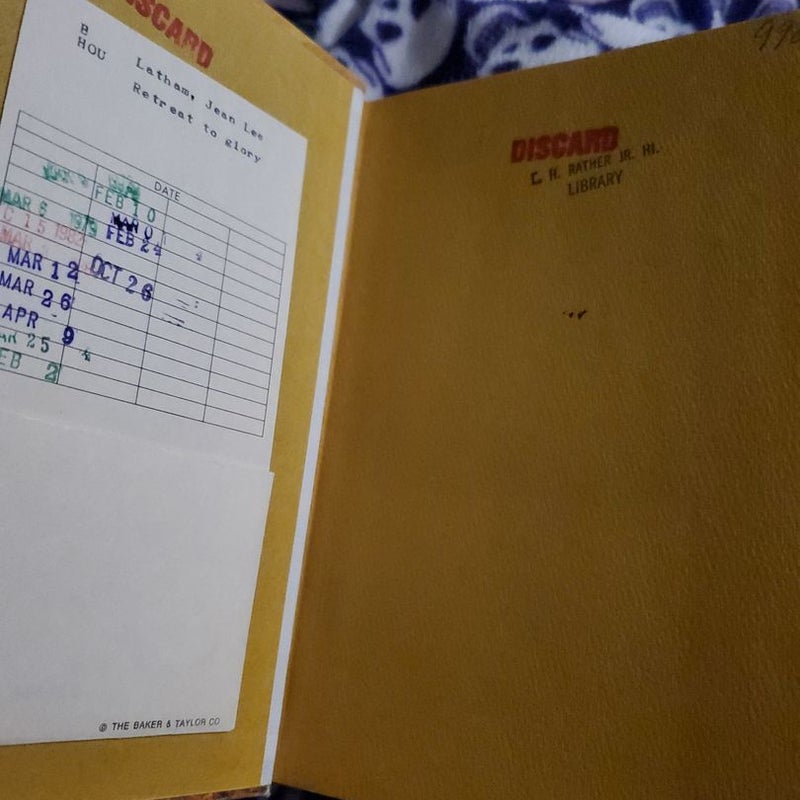 DISCARD
B
HOU
Latham, Jean Lee
Retreat to glory
DATE
FEB 10
MAR 6 1979
FEB 24
MAR
MAR 12
OCT 26
MAR 26
APR - 9
25
FEB 2
© THE BAKER & TAYLOR CO
DISCARD
C. H. RATHER JR. HI.
LIBRARY